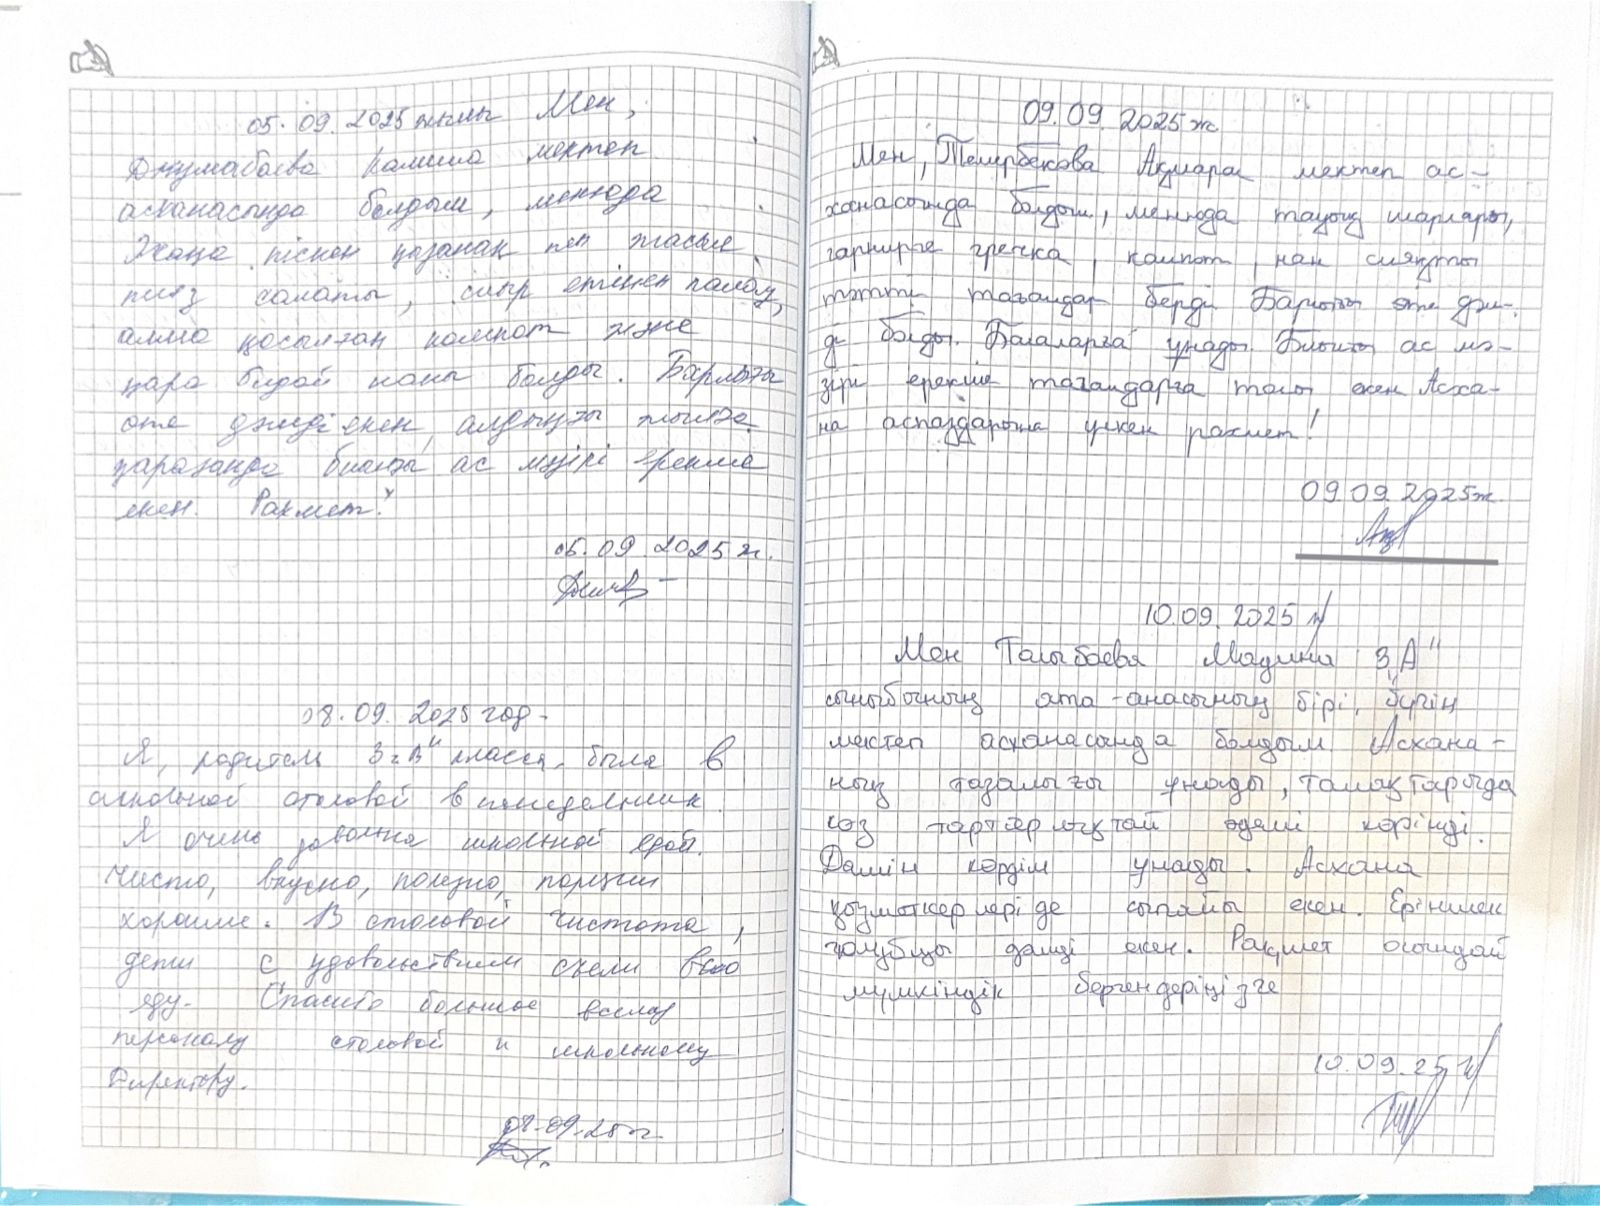 05.09.2025 жылы Мен,
Джумабаева Камила мектеп
асханасында болдым, менюда
Жаңа піскен қазанақ пен жасыл
пияз салаты, сиыр етінен палау,
алма қосылған компот және
қара бидай наны болды. Барлығы
өте дәмді екен, алдыңғы жылға
қарағанда биылғы ас мәзірі ерекше
екен. Рахмет!
05.09.2025 ж.
08.09.2025 год.
Я, родитель 3 "В" класса, была в
школьной столовой в понедельник.
Я очень довольна школьной едой.
Чисто, вкусно, полезно, порции
хорошие. В столовой чистота,
дети с удовольствием съели всю
еду. Спасибо большое всему
персоналу столовой и школьному
Директору.
08.09.25 г
09.09.2025ж
Мен, Темірбекова Ақмарал мектеп ас-
ханасында болдым, менюда тауық шарлары,
гарнирге гречка, компот, нан сияқты
тәтті тағамдар берді. Барлығы өте дәм-
ді болды. Балаларға ұнады. Биылғы ас мә-
зірі ерекше тағамдарға толы екен. Асха-
на аспаздарына үлкен рахмет!
09.09.2025ж.
10.09.2025 ж
Мен Толыбаева Мадина 3 "А"
сыныбының ата-анасының бірі, бүгін
мектеп асханасында болдым. Асхана-
ның тазалығы ұнады, тамақтарыда
көз тартарлықтай әдемі көрінді.
Дәмін көрдім ұнады. Асхана
қызметкерлері де сыпайы екен. Ерінішек
голубцы дәмді екен. Рақмет осындай
мүмкіндік бергендеріңізге
10.09.25 ж